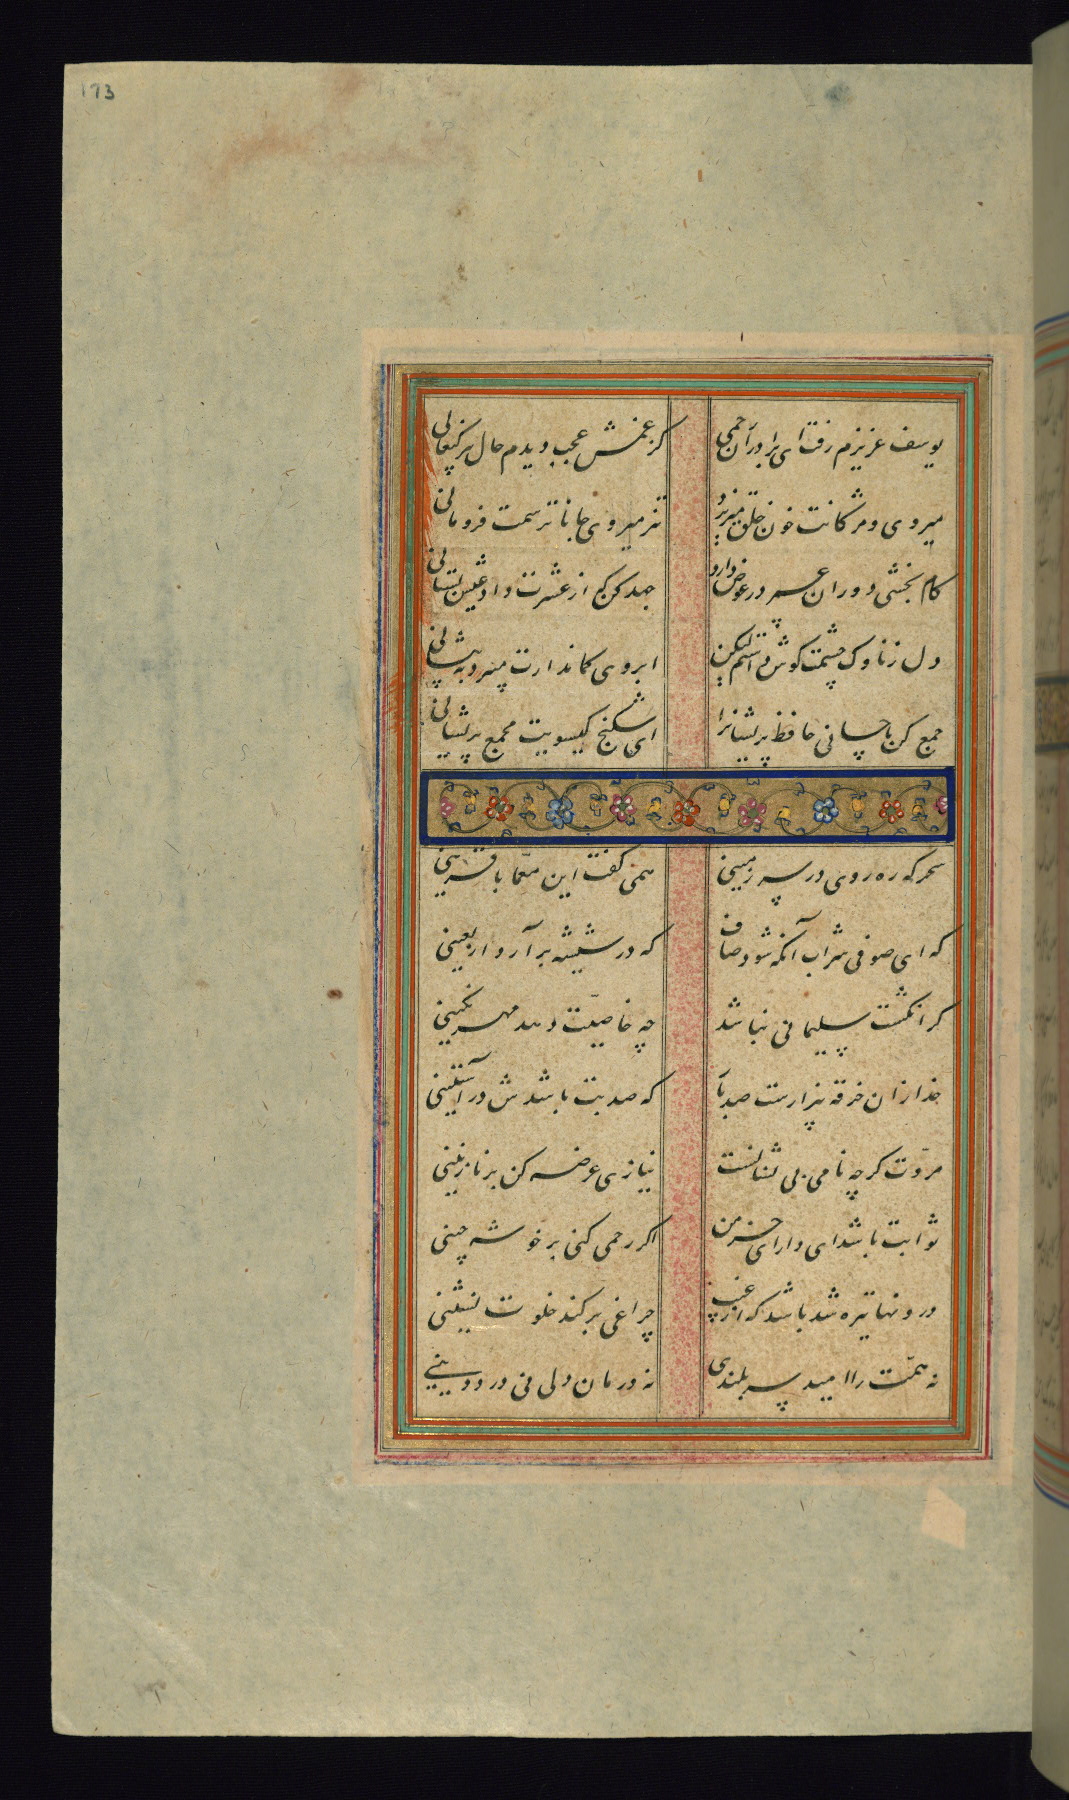 173
یوسف عزیزم رفت ای برادران رحمی کز غمش عجب دیدم حال پیر کنعانی
میروی و مژکانت خون خلق میریزد تیز میروی جانا ترسمت فرومانی
کام بخشی دوران عمر در عوض دارد جهد کن که از عشرت داد عیش بستانی
دل ز ناوک چشمت کوش داشتم لیکن ابروی کماندارت میبرد به پیشانی
جمع کن باحسانی حافظ پریشانرا ای شکنج کیسویت مجمع پریشانی
سحرکه ره روی در سر زمینی همی کفت این معمّا با قرینی
که ای صوفی شراب آنکه شود صاف که در شیشه برآرد اربعینی
کر انکشت سلیمانی نباشد چه خاصیّت دهد مهر نکینی
خدا زان خرقه بیزارست صد بار که صد بت باشدش در آستینی
مروّت کرچه نامی بی نشانست نیازی عرضه کن بر نازنینی
ثوابت باشد ای دارای خرمن اکر رحمی کنی بر خوشه چینی
درونها تیره شد باشد که از غیب چراغی بر کند خلوت نشینی
نه همّت را امید سر بلندی نه درمان دلی نی درد دینی